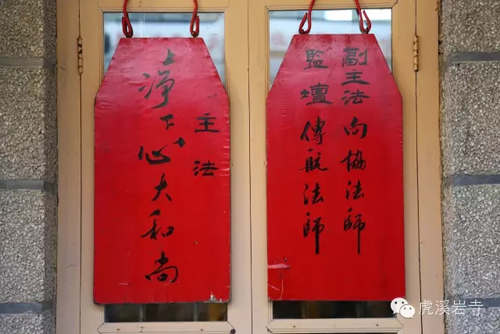 副主法 向協法師
監壇 傳航法師
主法
上淨下心大和尚
虎溪岩寺